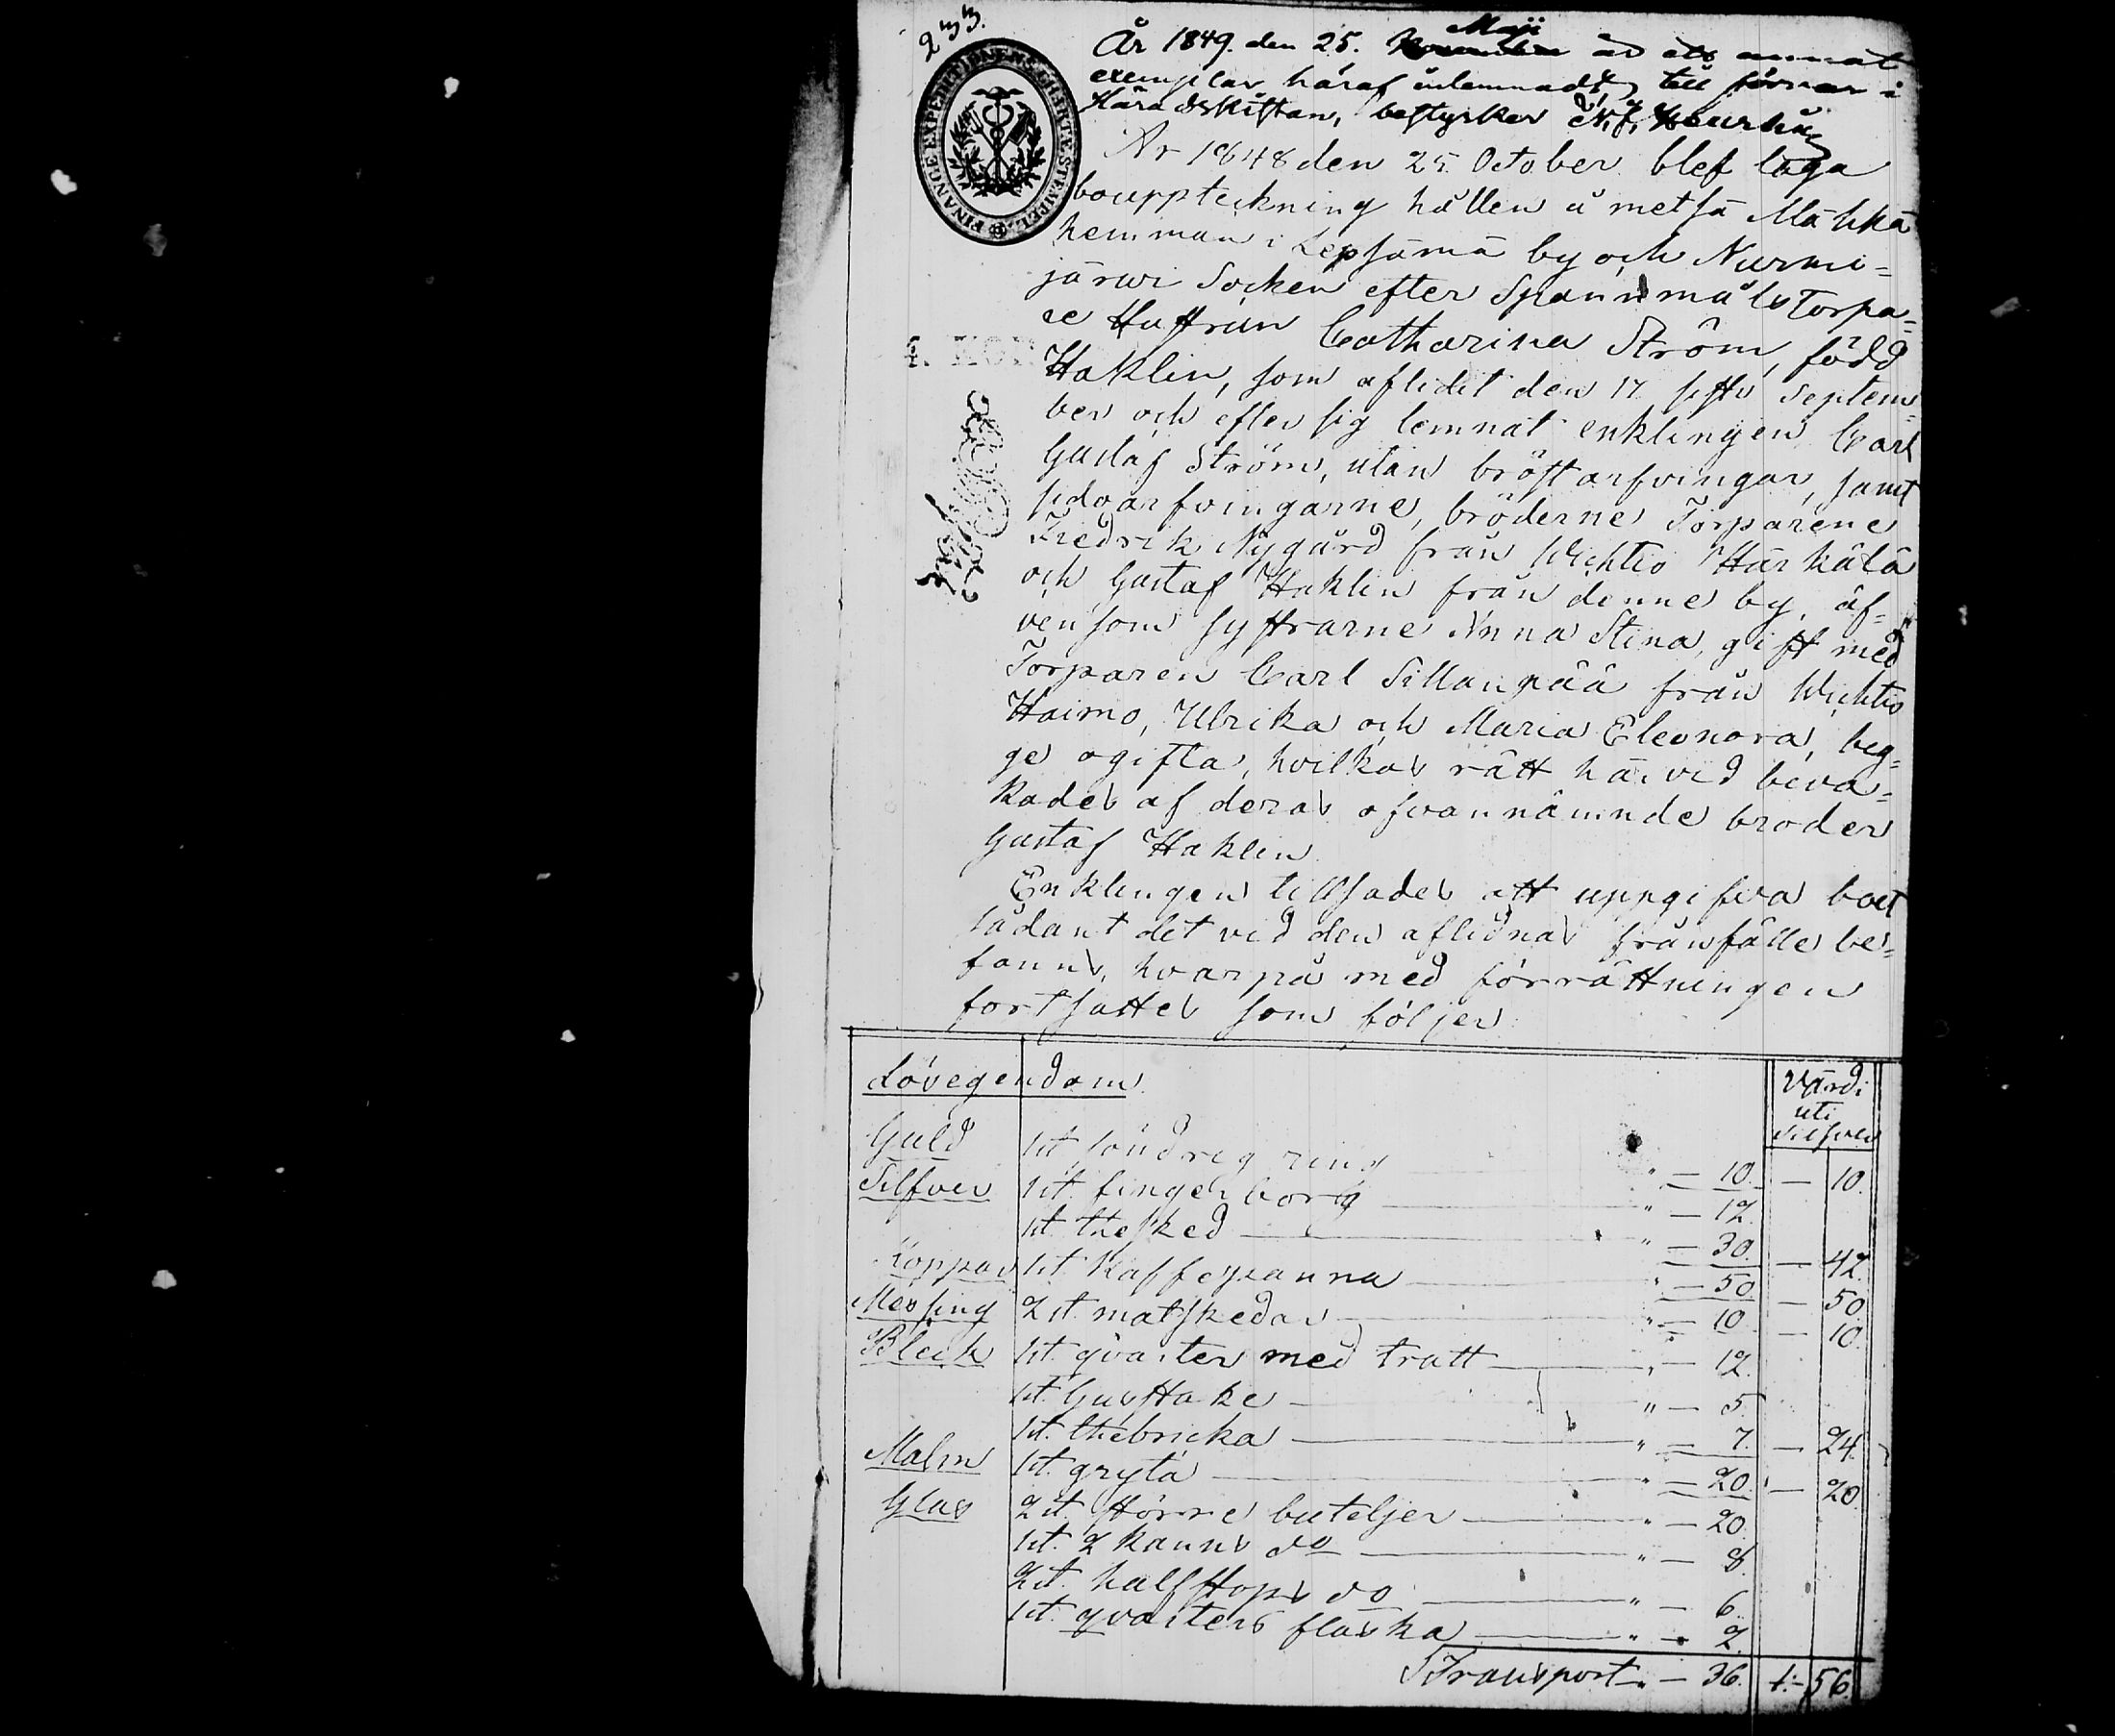 233.
År 1849. den 25. Maji är ett annat
exemplar häraf inlemnadt till förvar i
Häradskistan, bestyrker
FINANCE EXPEDITIONENS CHARTÆ STEMPEL.
År 1848 den 25 October blef laga
bouppteckning hållen å metsä Måhkä
hemman i Lepsämä by och Nurmi=
järwi Socken efter Spannmåls Torpa=
re Hustrun Catharina Ström, född
4. KOP
Haklin, som aflidit den 17 sistl. Septem=
ber och efter sig lemnat enklingen Carl
Gustaf Ström, utan bröstarfvingar, samt
sidoarfvingarne, bröderne Torparene
Fredrik Nygård från Wichtis Härkälä
och Gustaf Haklin från denne by, äf=
vensom systrarne Anna Stina, gift med
Torparen Carl Sillanpää från Wichtis
Haimo, Ulrika och Maria Eleonora, beg=
ge ogifta, hvilkas rätt härvid beva=
kades af deras ofvannämnde broder
Gustaf Haklin.
Enklingen tillsades att uppgifva boet
sådant det vid den aflidnas frånfälle be=
fanns, hvarpå med förrättningen
fortsattes som följer:
Lösegendom. Värde
uti
Silfver
Guld 1 st. söndrig ring " — 10. — 10.
Silfver 1 st. fingerborg " — 12.
1 st. thesked " — 30. — 42.
Koppar 1 st. Kaffepanna " — 50 — 50
Messing 2 st. matskedar " — 10 — 10.
Bleck 1 st. qvarter med tratt " — 12.
1 st. ljusstake " — 5.
1 st. thebricka " — 7. — 24.
Malm 1 st. gryta " — 20. — 20.
Glas 2 st. större buteljer " — 20.
1 st. 2 kanns do " — 8.
2 st. halfstops do " — 6.
1 st. qvarters flaska " — 2.
Transport " — 36. 1:— 56.